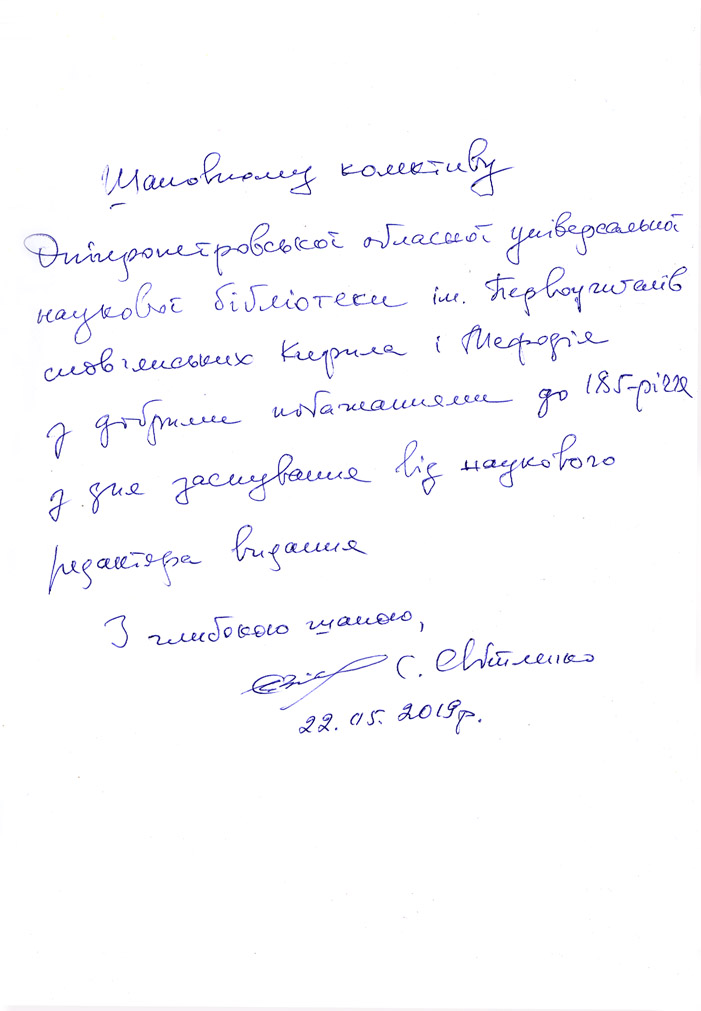 Шановному колективу
Дніпропетровської обласної універсальної
наукової бібліотеки ім. Первоучителів
слов'янських Кирила і Мефодія
з добрими побажаннями до 185-річчя
з дня заснування від наукового
редактора видання
З глибокою шаною,
С. Світленко
22.05.2019р.